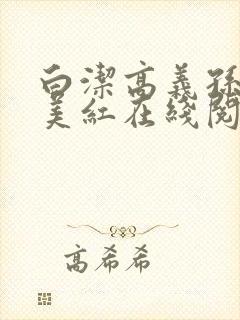 白潔高義孫
美紅在綫閱
高希希